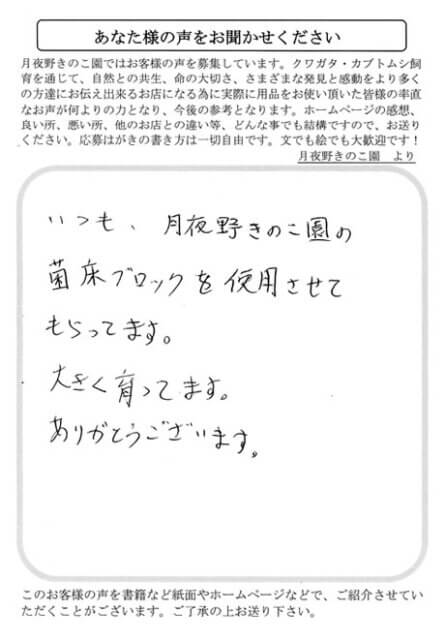 あなた様の声をお聞かせください
月夜野きのこ園ではお客様の声を募集しています。クワガタ・カブトムシ飼
育を通じて、自然との共生、命の大切さ、さまざまな発見と感動をより多く
の方達にお伝え出来るお店になる為に実際に用品をお使い頂いた皆様の率直
なお声が何よりの力となり、今後の参考となります。ホームページの感想、
良い所、悪い所、他のお店との違い等、どんな事でも結構ですので、お送り
ください。応募はがきの書き方は一切自由です。文でも絵でも大歓迎です！
月夜野きのこ園　より
いつも、月夜野きのこ園の
菌床ブロックを使用させて
もらってます。
大きく育ってます。
ありがとうございます。
このお客様の声を書籍など紙面やホームページなどで、ご紹介させてい
ただくことがございます。ご了承の上お送り下さい。